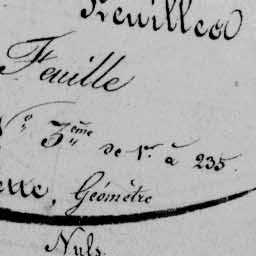 Feuilles
Feuille
3ème de 1er à 235.
Géomètre
Nuls